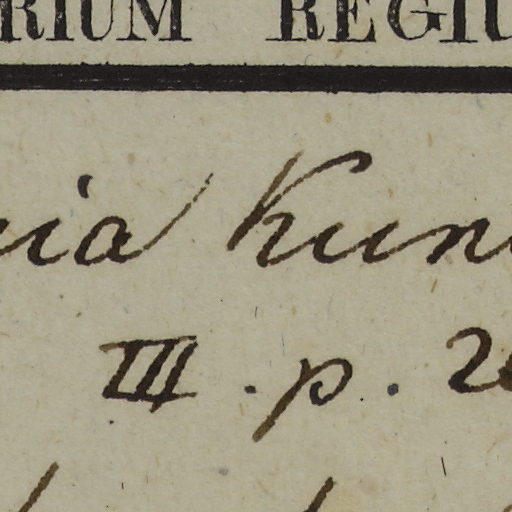 RIUM REGIU
nia Kun
III . p . 2